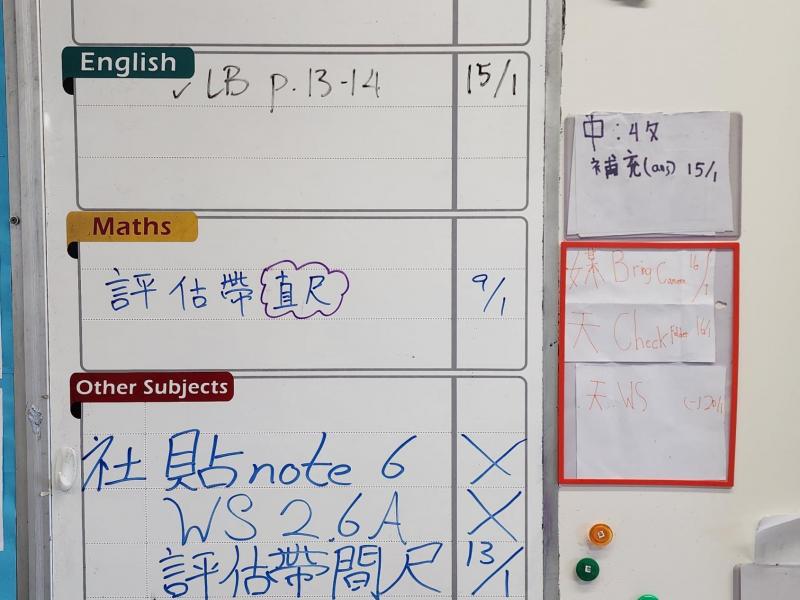 English
✓ LB p.13-14 15/1
Maths
評估帶直尺 9/1
Other Subjects
社 貼note 6 X
WS 2.6A X
評估帶間尺 13/1
中:收
補充(ans) 15/1
Bring Camera 16/1
天 Check Folder 16/1
天 WS